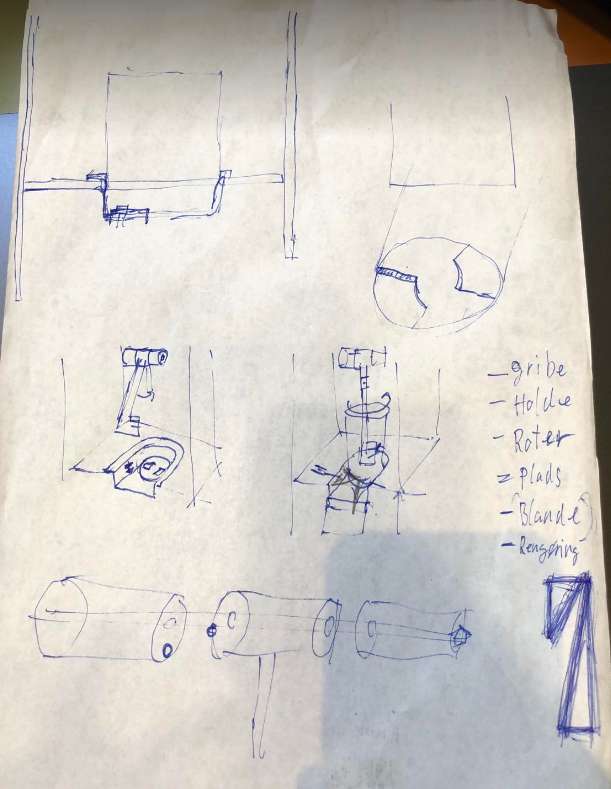 - gribe
- Holde
- Roter
- Plads
- (Blande)
- Rengøring